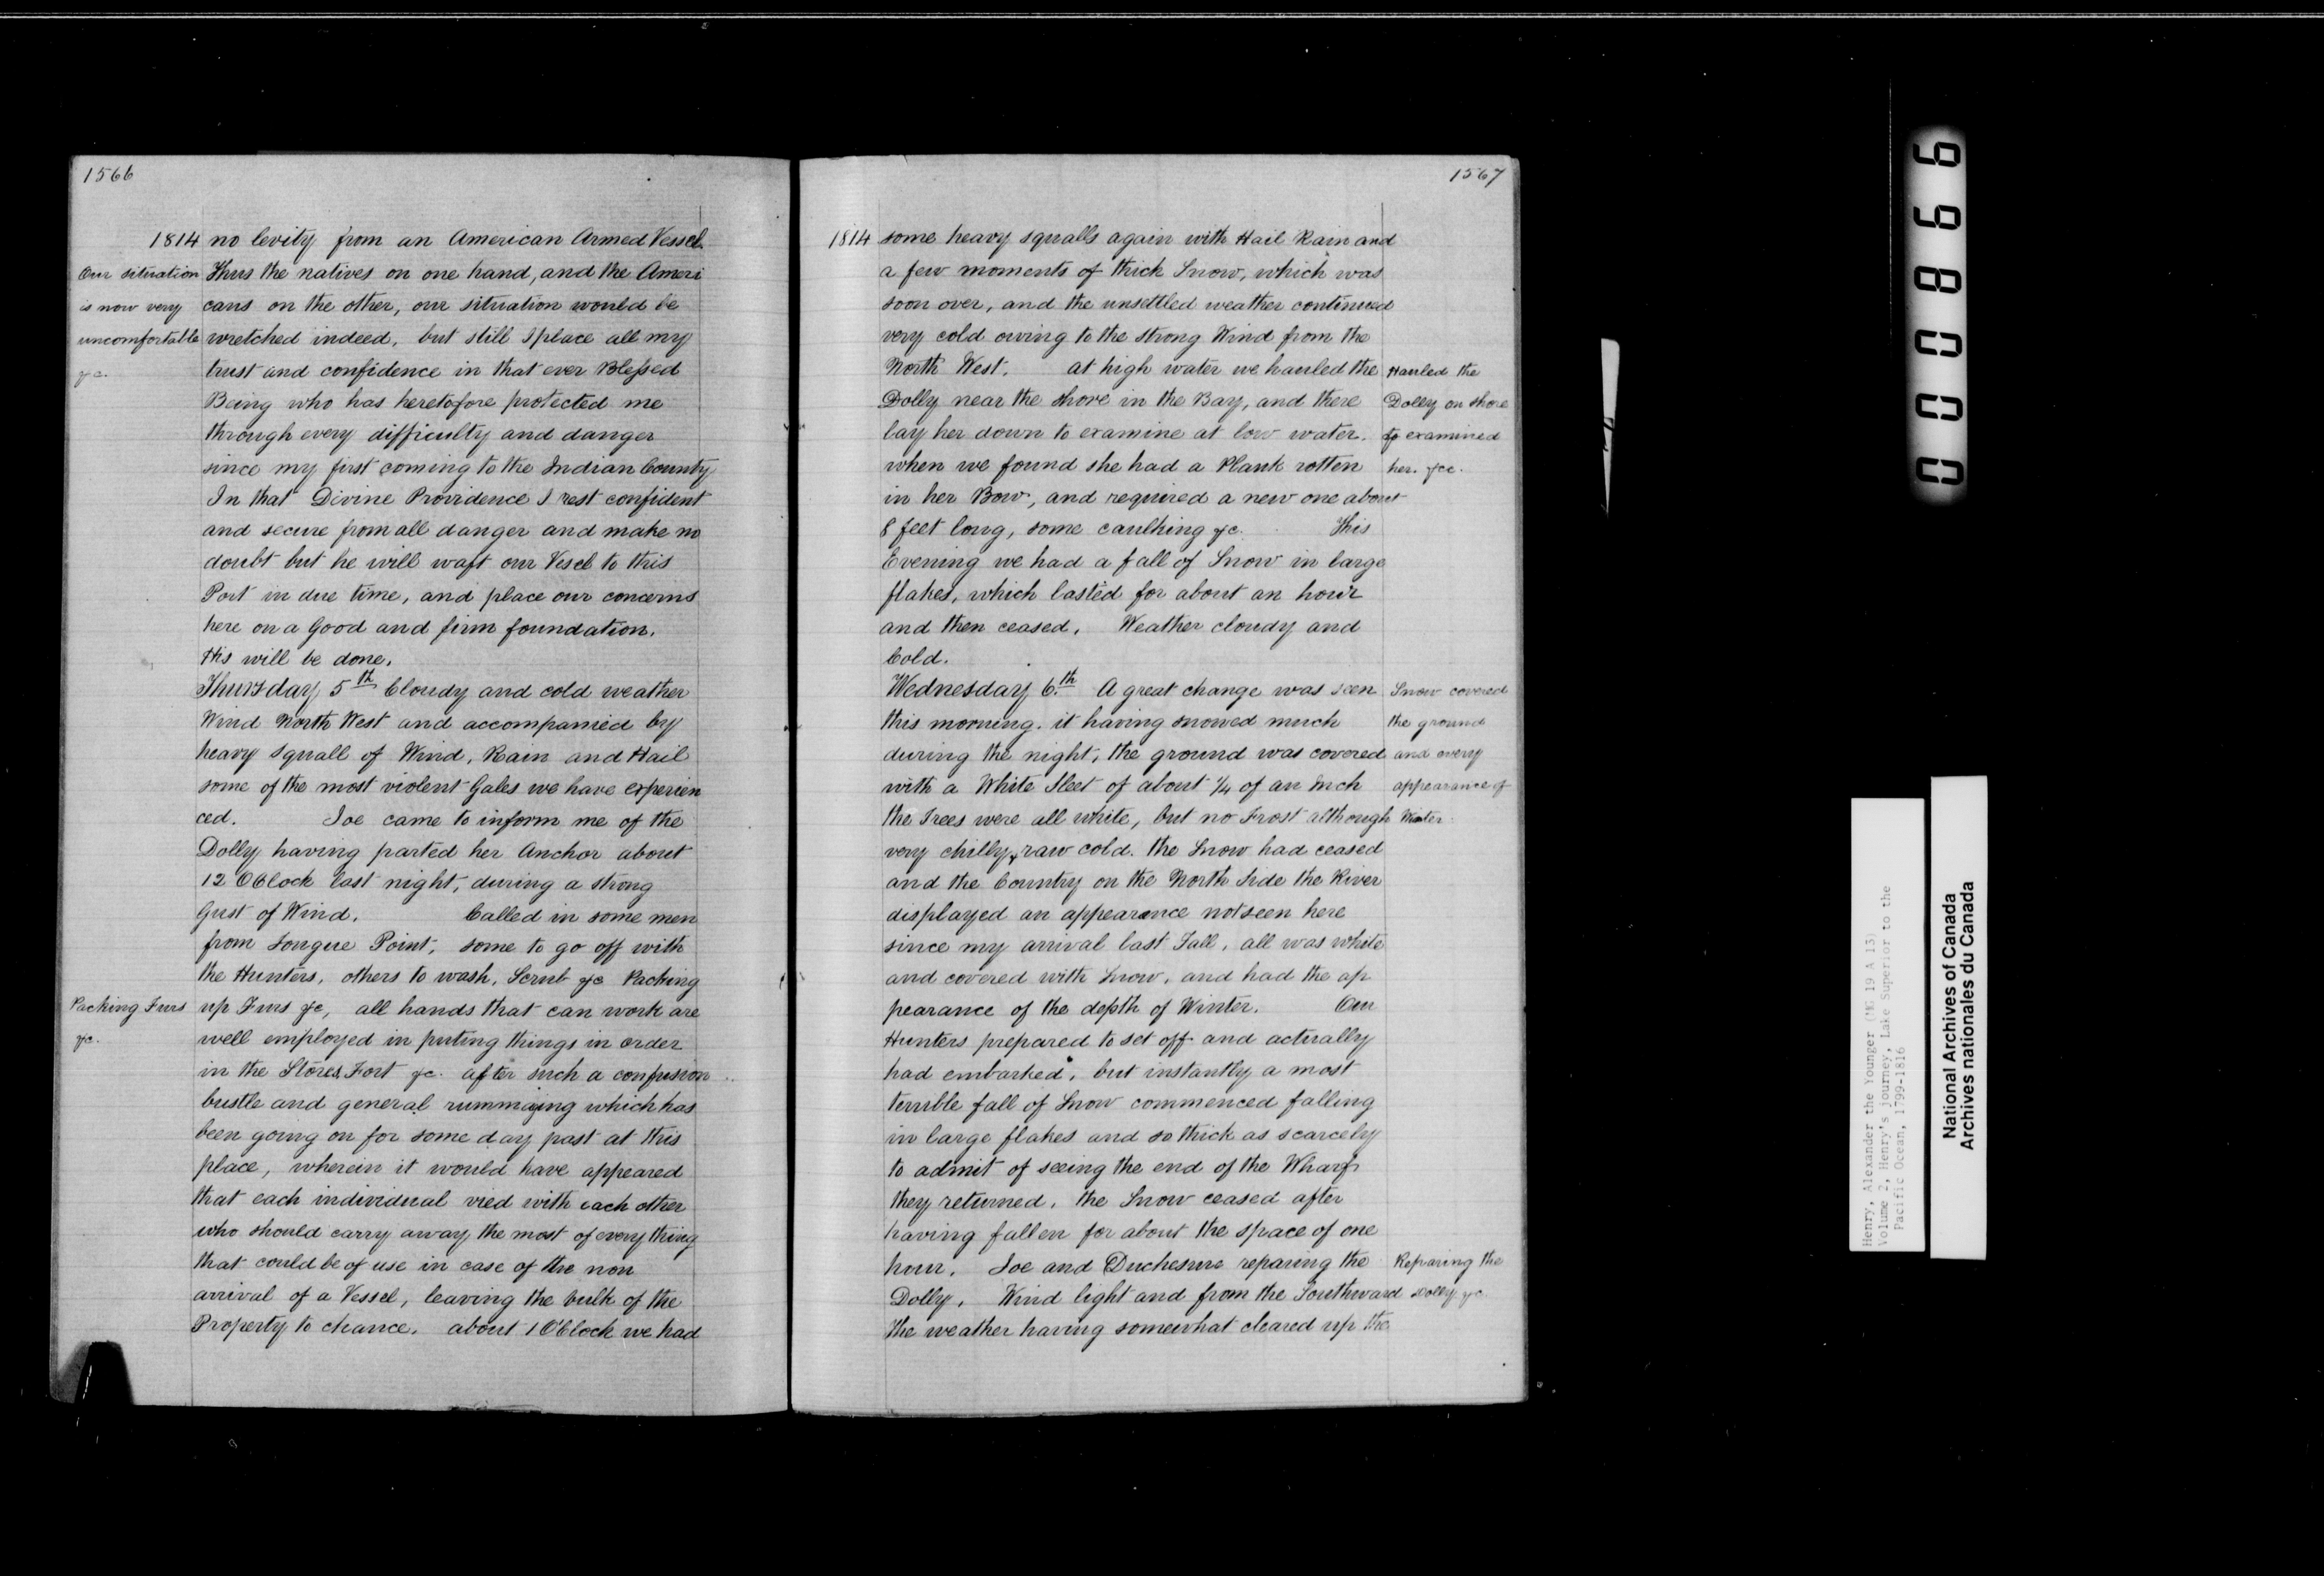 1566
1814 no levity from an American Armed Vessel.
Our situation Thus the natives on one hand, and the Ameri
is now very cans on the other, our situation would be
uncomfortable wretched indeed, but still I place all my
&c. trust and confidence in that ever Blessed
Being who has heretofore protected me
through every difficulty and danger
since my first coming to the Indian County
In that Divine Providence I rest confident
and secure from all danger and make no
doubt but he will waft our Vesel to this
Port in due time, and place our concerns
here on a Good and firm foundation.
His will be done.
Thursday 5th Cloudy and cold weather
Wind North West and accompanied by
heavy squall of Wind, Rain and Hail
some of the most violent Gales we have experien
ced. Joe came to inform me of the
Dolly having parted her Anchor about
12 OClock last night, during a strong
Gust of Wind. Called in some men
from Tongue Point, some to go off with
the Hunters, others to wash, Scrub &c Packing
Packing Furs up Furs &c, all hands that can work are
&c. well employed in puting things in order
in the Stores, Fort &c. after such a confusion
bustle and general rummaging which has
been going on for some day past at this
place, wherein it would have appeared
that each individual vied with each other
who should carry away the most of every thing
that could be of use in case of the non
arrival of a Vessel, leaving the bulk of the
Property to chance. about 1 O'Clock we had
1567
1814 some heavy squalls again with Hail Rain and
a few moments of thick Snow, which was
soon over, and the unsettled weather continued
very cold owing to the strong Wind from the
North West. at high water we hauled the Hauled the
Dolly near the shore in the Bay, and there Dolly on shore
lay her down to examine at low water. to examined
when we found she had a Plank rotten her. &c.
in her Bow, and required a new one about
8 feet long, some caulking &c. This
Evening we had a fall of Snow in large
flakes, which lasted for about an hour
and then ceased. Weather cloudy and
Cold.
Wednesday 6th. A great change was seen Snow covered
this morning. it having snowed much the ground
during the night, the ground was covered and every
with a White Sleet of about 1/4 of an Inch appearance of
the Trees were all white, but no Frost although Winter.
very chilly, & raw cold. the Snow had ceased
and the Country on the North Side the River
displayed an appearance not seen here
since my arrival last Fall, all was white
and covered with Snow, and had the ap
pearance of the depth of Winter. Our
Hunters prepared to set off and actually
had embarked, but instantly a most
terrible fall of Snow commenced falling
in large flakes and so thick as scarcely
to admit of seeing the end of the Wharf
they returned, the Snow ceased after
having fallen for about the space of one
hour. Joe and Duchesne reparing the Reparing the
Dolly. Wind light and from the Southward Dolly &c.
The weather having somewhat cleared up the
000866
Henry, Alexander the Younger (MG 19 A 13)
Volume 2, Henry's journey, Lake Superior to the
Pacific Ocean, 1799-1816
National Archives of Canada
Archives nationales du Canada